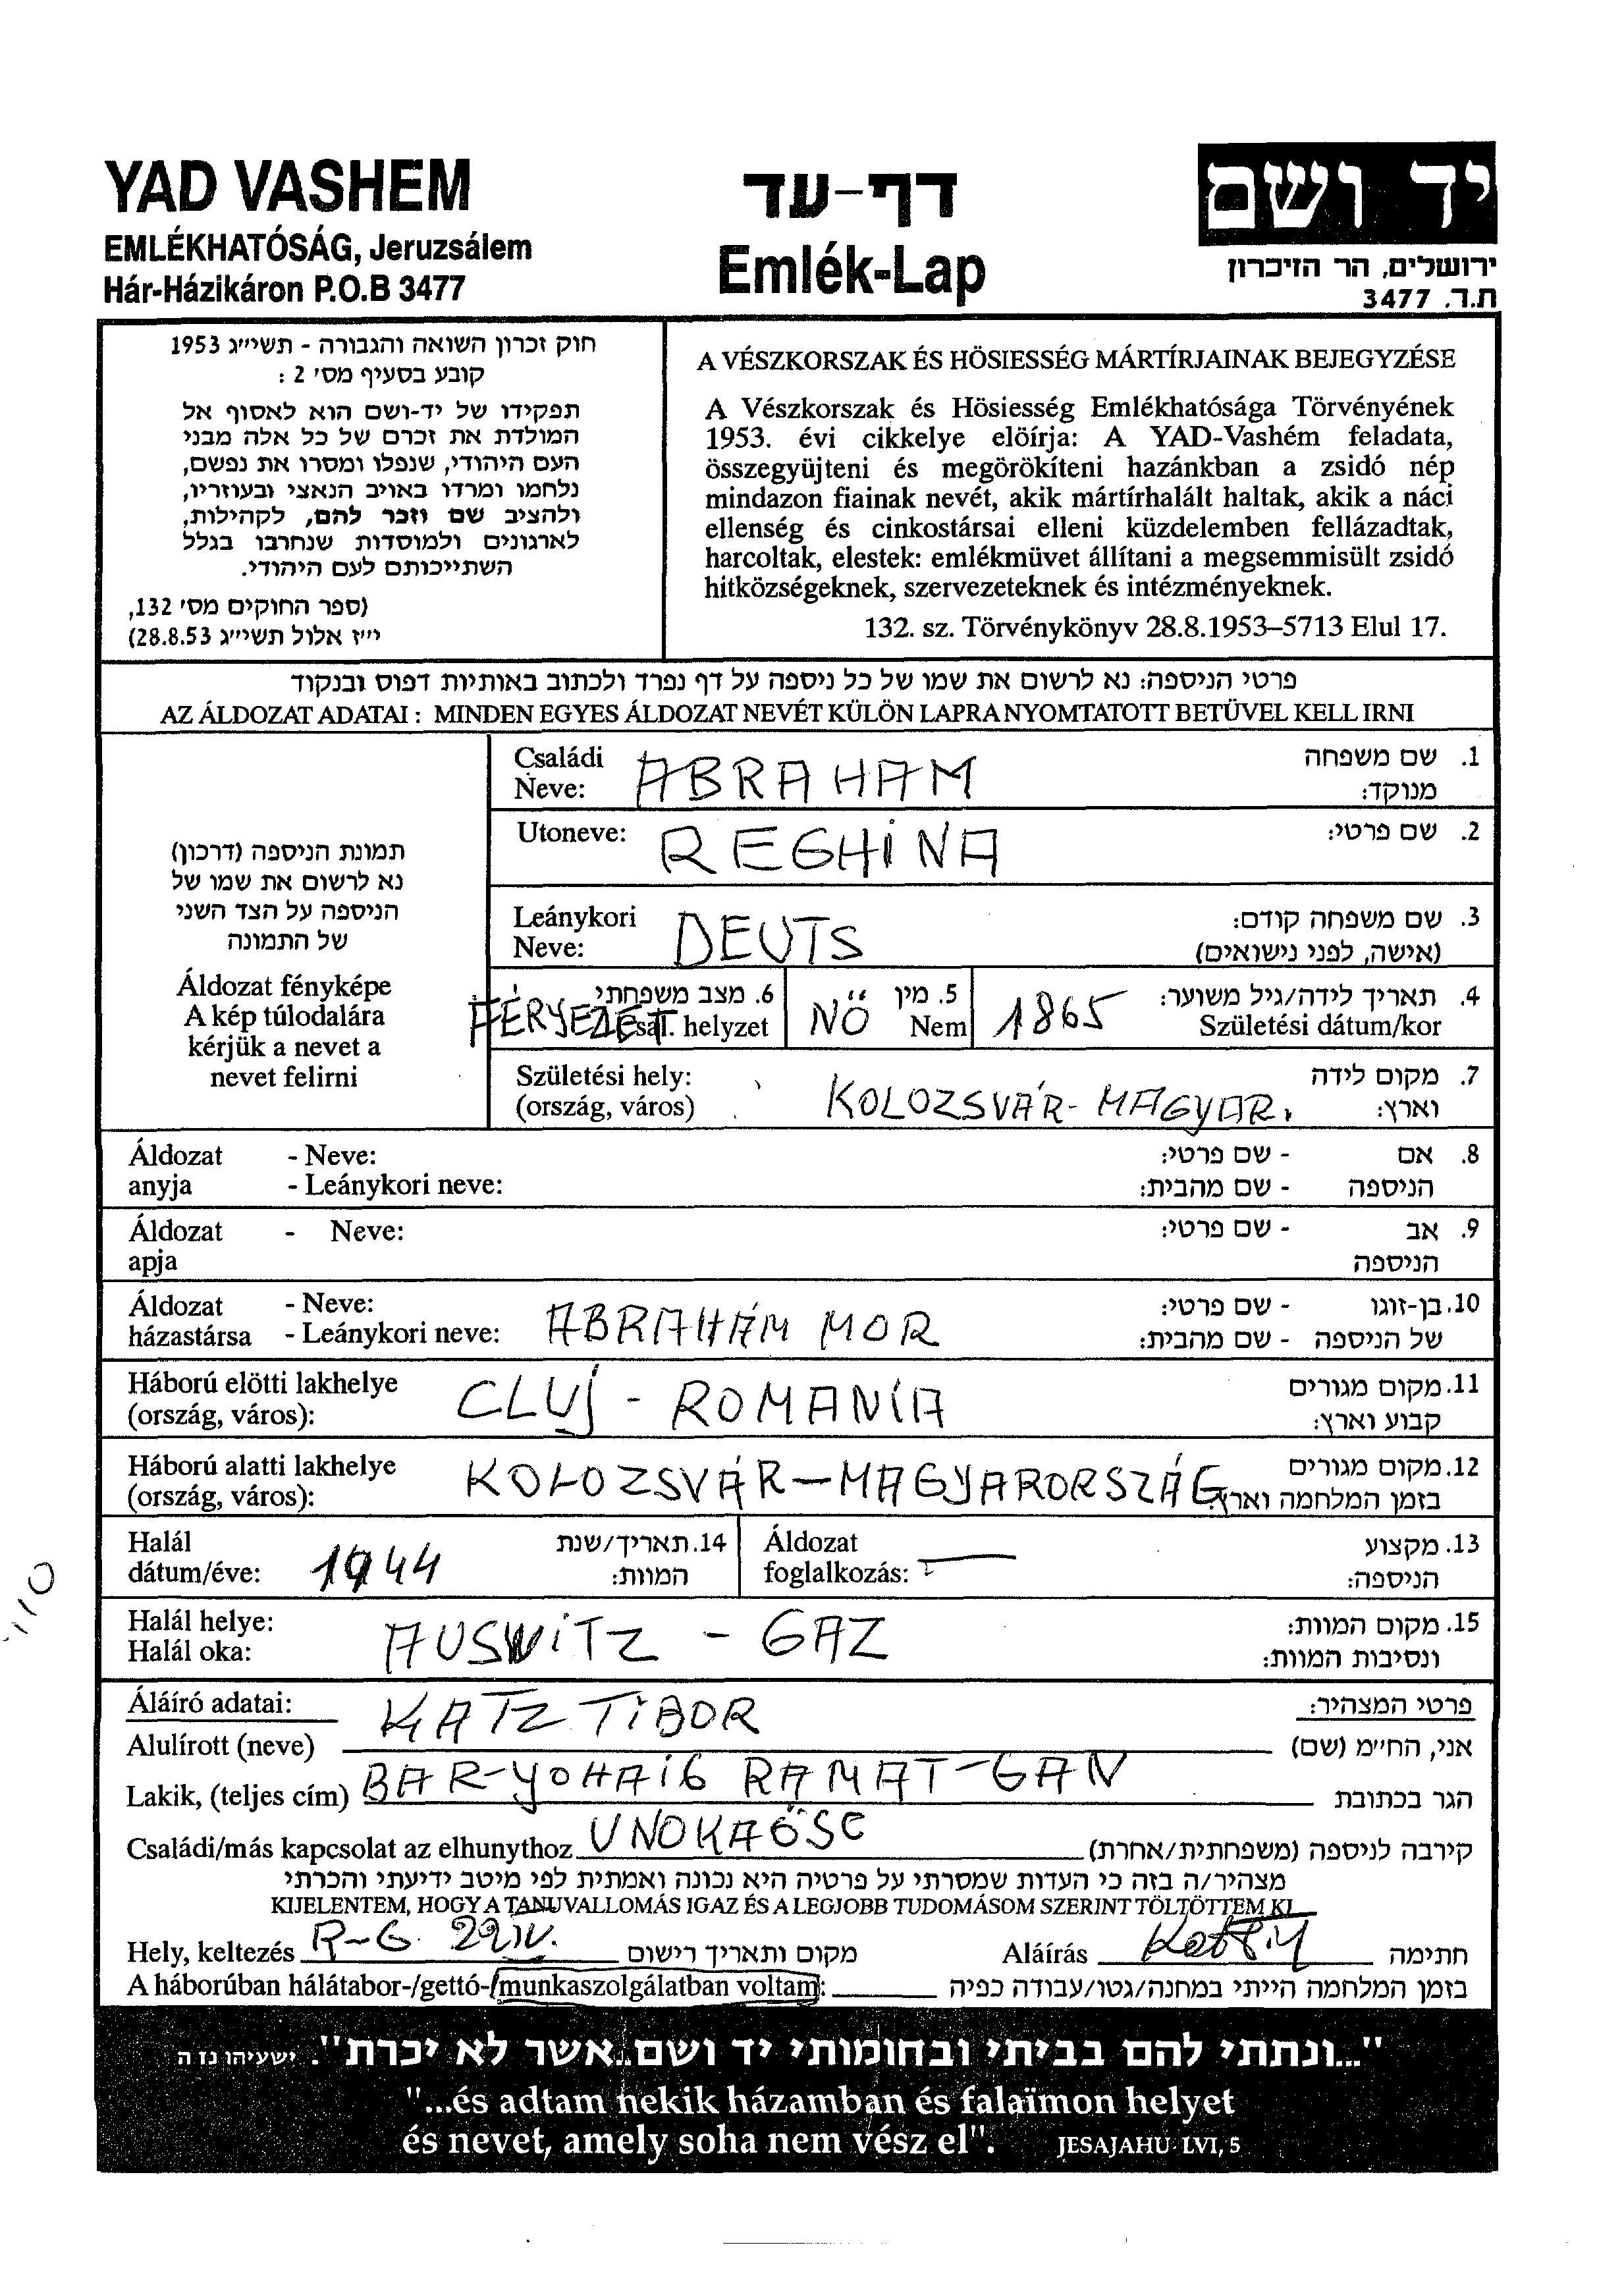 YAD VASHEM
EMLÉKHATÓSÁG, Jeruzsálem
Hár-Házikáron P.O.B 3477
דף-עד
Emlék-Lap
יד ושם
ירושלים, הר הזיכרון
ת.ד. 3477
חוק זכרון השואה והגבורה - תשי״ג 1953
קובע בסעיף מס׳ 2 :
תפקידו של יד-ושם הוא לאסוף אל
המולדת את זכרם של כל אלה מבני
העם היהודי, שנפלו ומסרו את נפשם,
נלחמו ומרדו באויב הנאצי ובעוזריו,
ולהציב שם וזכר להם, לקהילות,
לארגונים ולמוסדות שנחרבו בגלל
השתייכותם לעם היהודי.
(ספר החוקים מס׳ 132,
י״ז אלול תשי״ג 28.8.53)
A VÉSZKORSZAK ÉS HÖSIESSÉG MÁRTÍRJAINAK BEJEGYZÉSE
A Vészkorszak és Hösiesség Emlékhatósága Törvényének
1953. évi cikkelye elöírja: A YAD-Vashém feladata,
összegyüjteni és megörökíteni hazánkban a zsidó nép
mindazon fiainak nevét, akik mártírhalált haltak, akik a náci
ellenség és cinkostársai elleni küzdelemben fellázadtak,
harcoltak, elestek: emlékmüvet állítani a megsemmisült zsidó
hitközségeknek, szervezeteknek és intézményeknek.
132. sz. Törvénykönyv 28.8.1953–5713 Elul 17.
פרטי הניספה: נא לרשום את שמו של כל ניספה על דף נפרד ולכתוב באותיות דפוס ובנקוד
AZ ÁLDOZAT ADATAI : MINDEN EGYES ÁLDOZAT NEVÉT KÜLÖN LAPRA NYOMTATOTT BETÜVEL KELL IRNI
תמונת הניספה (דרכון)
נא לרשום את שמו של
הניספה על הצד השני
של התמונה
Áldozat fényképe
A kép túlodalára
kérjük a nevet a
nevet felirni
Családi ABRAHAM 1. שם משפחה
Neve: מנוקד:
Utoneve: REGHiNA 2. שם פרטי:
Leánykori DEUTS 3. שם משפחה קודם:
Neve: (אישה, לפני נישואים)
FÉRJEZET 6. מצב משפחתי 5. מין 1865 4. תאריך לידה/גיל משוער:
Csal. helyzet NŐ Nem Születési dátum/kor
Születési hely: KOLOZSVÁR- MAGYAR. 7. מקום לידה
(ország, város) וארץ:
Áldozat - Neve: - שם פרטי: 8. אם
anyja - Leánykori neve: - שם מהבית: הניספה
Áldozat - Neve: - שם פרטי: 9. אב
apja הניספה
Áldozat - Neve: ABRAHÁM MOR - שם פרטי: 10. בן-זוגו
házastársa - Leánykori neve: - שם מהבית: של הניספה
Háború elötti lakhelye CLUj - ROMANiA 11. מקום מגורים
(ország, város): קבוע וארץ:
Háború alatti lakhelye KOLOZSVÁR–MAGYARORSZÁG 12. מקום מגורים
(ország, város): בזמן המלחמה וארץ
Halál 1944 14. תאריך/שנת Áldozat 13. מקצוע
dátum/éve: המוות: foglalkozás: — הניספה:
Halál helye: AUSWiTZ - GAZ 15. מקום המוות:
Halál oka: ונסיבות המוות:
Áláíró adatai: KATZ TiBOR פרטי המצהיר:
Alulírott (neve) אני, החי״מ (שם)
Lakik, (teljes cím) BAR-YOHAi6 RAMAT-GAN הגר בכתובת
Családi/más kapcsolat az elhunythoz UNOKAÖSC קירבה לניספה (משפחתית/אחרת)
מצהיר/ה בזה כי העדות שמסרתי על פרטיה היא נכונה ואמתית לפי מיטב ידיעתי והכרתי
KIJELENTEM, HOGY A TANUVALLOMÁS IGAZ ÉS A LEGJOBB TUDOMÁSOM SZERINT TÖLTÖTTEM KI
Hely, keltezés R-G. 29IV. מקום ותאריך רישום Aláírás חתימה
A háborúban hálátabor-/gettó-/munkaszolgálatban voltam: בזמן המלחמה הייתי במחנה/גטו/עבודה כפיה
"...ונתתי להם בביתי ובחומותי יד ושם..אשר לא יכרת". ישעיהו נו ה
"...és adtam nekik házamban és falaïmon helyet
és nevet, amely soha nem vész el". JESAJAHU LVI, 5